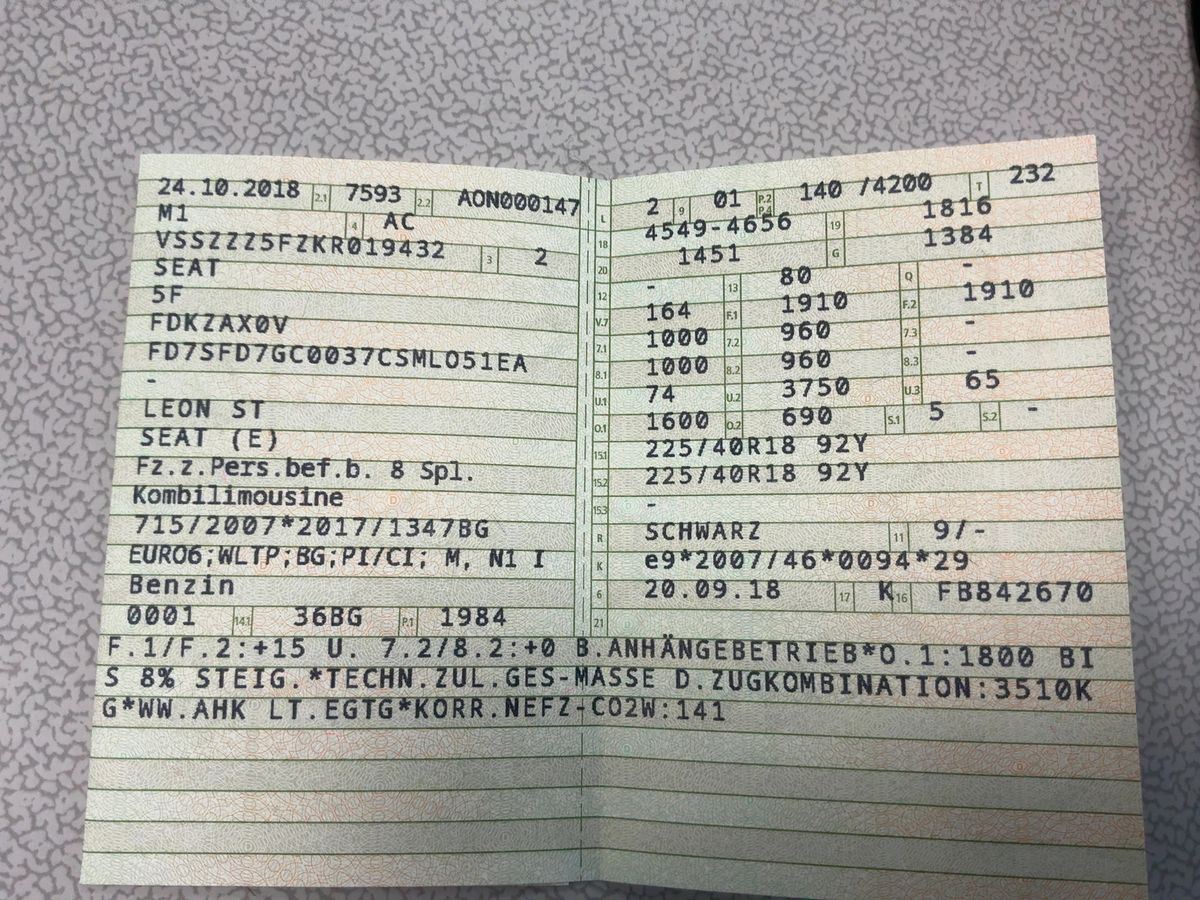 24.10.2018 2.1 7593 2.2 AON000147
M1 4 AC
VSSZZZ5FZKR019432 3 2
SEAT
5F
FDKZAX0V
FD7SFD7GC0037CSMLO51EA
-
LEON ST
SEAT (E)
Fz.z.Pers.bef.b. 8 Spl.
Kombilimousine
715/2007*2017/1347BG
EURO6;WLTP;BG;PI/CI; M, N1 I
Benzin
0001 14.1 36BG P.1 1984
L 2 9 01 P.2 P.4 140 /4200 T 232
18 4549-4656 19 1816
20 1451 G 1384
12 - 13 80 Q -
V.7 164 F.1 1910 F.2 1910
7.1 1000 7.2 960 7.3 -
8.1 1000 8.2 960 8.3 -
U.1 74 U.2 3750 U.3 65
O.1 1600 O.2 690 S.1 5 S.2 -
15.1 225/40R18 92Y
15.2 225/40R18 92Y
15.3 -
R SCHWARZ 11 9/-
K e9*2007/46*0094*29
6 20.09.18 17 K 16 FB842670
21
F.1/F.2:+15 U. 7.2/8.2:+0 B.ANHÄNGEBETRIEB*O.1:1800 BI
S 8% STEIG.*TECHN.ZUL.GES-MASSE D.ZUGKOMBINATION:3510K
G*WW.AHK LT.EGTG*KORR.NEFZ-CO2W:141